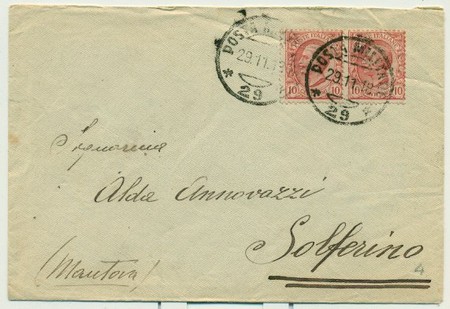 POSTA MILITARE
29.11.18
29
POSTA MILITARE
29.11.18
29
POSTE ITALIANE
10 10
10 10
Signorina
Alda Annovazzi
Solferino
(Mantova)
4